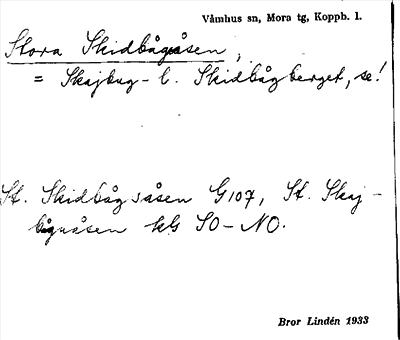 Våmhus sn, Mora tg, Koppb. l.
Stora Skidbågsåsen,
= Skajbug- l. Skidbågberget, se!
St. Skidbågsåsen G107, St. Skaj-
åsen SO-NO.
Bror Lindén 1933